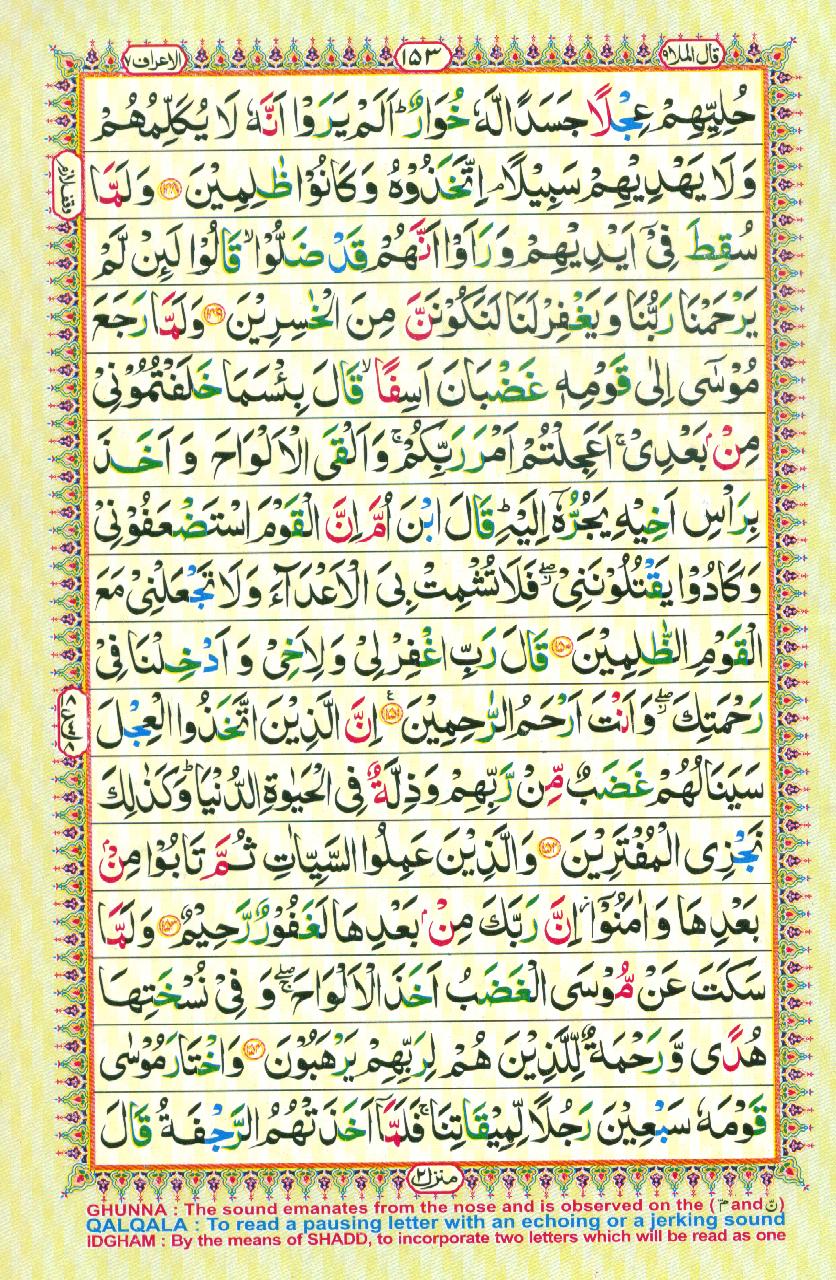 قال الملا۹
۱۵۳
الاعراف۷
حُلِیِّهِمْ عِجْلًا جَسَدًا لَّهٗ خُوَارٌ ؕ اَلَمْ یَرَوْا اَنَّهٗ لَا یُكَلِّمُهُمْ
وَلَا یَهْدِیْهِمْ سَبِیْلًا ۘ اِتَّخَذُوْهُ وَكَانُوْا ظٰلِمِیْنَ ﴿۱۴۸﴾ وَلَمَّا
سُقِطَ فِیْۤ اَیْدِیْهِمْ وَرَاَوْا اَنَّهُمْ قَدْ ضَلُّوْا ۙ قَالُوْا لَىِٕنْ لَّمْ
یَرْحَمْنَا رَبُّنَا وَیَغْفِرْ لَنَا لَنَكُوْنَنَّ مِنَ الْخٰسِرِیْنَ ﴿۱۴۹﴾ وَلَمَّا رَجَعَ
مُوْسٰۤی اِلٰی قَوْمِهٖ غَضْبَانَ اَسِفًا ۙ قَالَ بِئْسَمَا خَلَفْتُمُوْنِیْ
مِنْۢ بَعْدِیْ ۚ اَعَجِلْتُمْ اَمْرَ رَبِّكُمْ ۚ وَاَلْقَی الْاَلْوَاحَ وَ اَخَذَ
بِرَاْسِ اَخِیْهِ یَجُرُّهٗۤ اِلَیْهِ ؕ قَالَ ابْنَ اُمَّ اِنَّ الْقَوْمَ اسْتَضْعَفُوْنِیْ
وَكَادُوْا یَقْتُلُوْنَنِیْ ۖؗ فَلَا تُشْمِتْ بِیَ الْاَعْدَآءَ وَلَا تَجْعَلْنِیْ مَعَ
الْقَوْمِ الظّٰلِمِیْنَ ﴿۱۵۰﴾ قَالَ رَبِّ اغْفِرْ لِیْ وَ لِاَخِیْ وَ اَدْخِلْنَا فِیْ
رَحْمَتِكَ ۖؗ وَاَنْتَ اَرْحَمُ الرّٰحِمِیْنَ ﴿۱۵۱﴾ اِنَّ الَّذِیْنَ اتَّخَذُوا الْعِجْلَ
سَیَنَالُهُمْ غَضَبٌ مِّنْ رَّبِّهِمْ وَذِلَّةٌ فِی الْحَیٰوةِ الدُّنْیَا ؕ وَكَذٰلِكَ
نَجْزِی الْمُفْتَرِیْنَ ﴿۱۵۲﴾ وَالَّذِیْنَ عَمِلُوا السَّیِّاٰتِ ثُمَّ تَابُوْا مِنْۢ
بَعْدِهَا وَ اٰمَنُوْۤا ؗ اِنَّ رَبَّكَ مِنْۢ بَعْدِهَا لَغَفُوْرٌ رَّحِیْمٌ ﴿۱۵۳﴾ وَلَمَّا
سَكَتَ عَنْ مُّوْسَی الْغَضَبُ اَخَذَ الْاَلْوَاحَ ۖۚ وَ فِیْ نُسْخَتِهَا
هُدًی وَّ رَحْمَةٌ لِّلَّذِیْنَ هُمْ لِرَبِّهِمْ یَرْهَبُوْنَ ﴿۱۵۴﴾ وَاخْتَارَ مُوْسٰی
قَوْمَهٗ سَبْعِیْنَ رَجُلًا لِّمِیْقَاتِنَا ۚ فَلَمَّاۤ اَخَذَتْهُمُ الرَّجْفَةُ قَالَ
منزل۲
GHUNNA : The sound emanates from the nose and is observed on the (مّ and نّ)
QALQALA : To read a pausing letter with an echoing or a jerking sound
IDGHAM : By the means of SHADD, to incorporate two letters which will be read as one